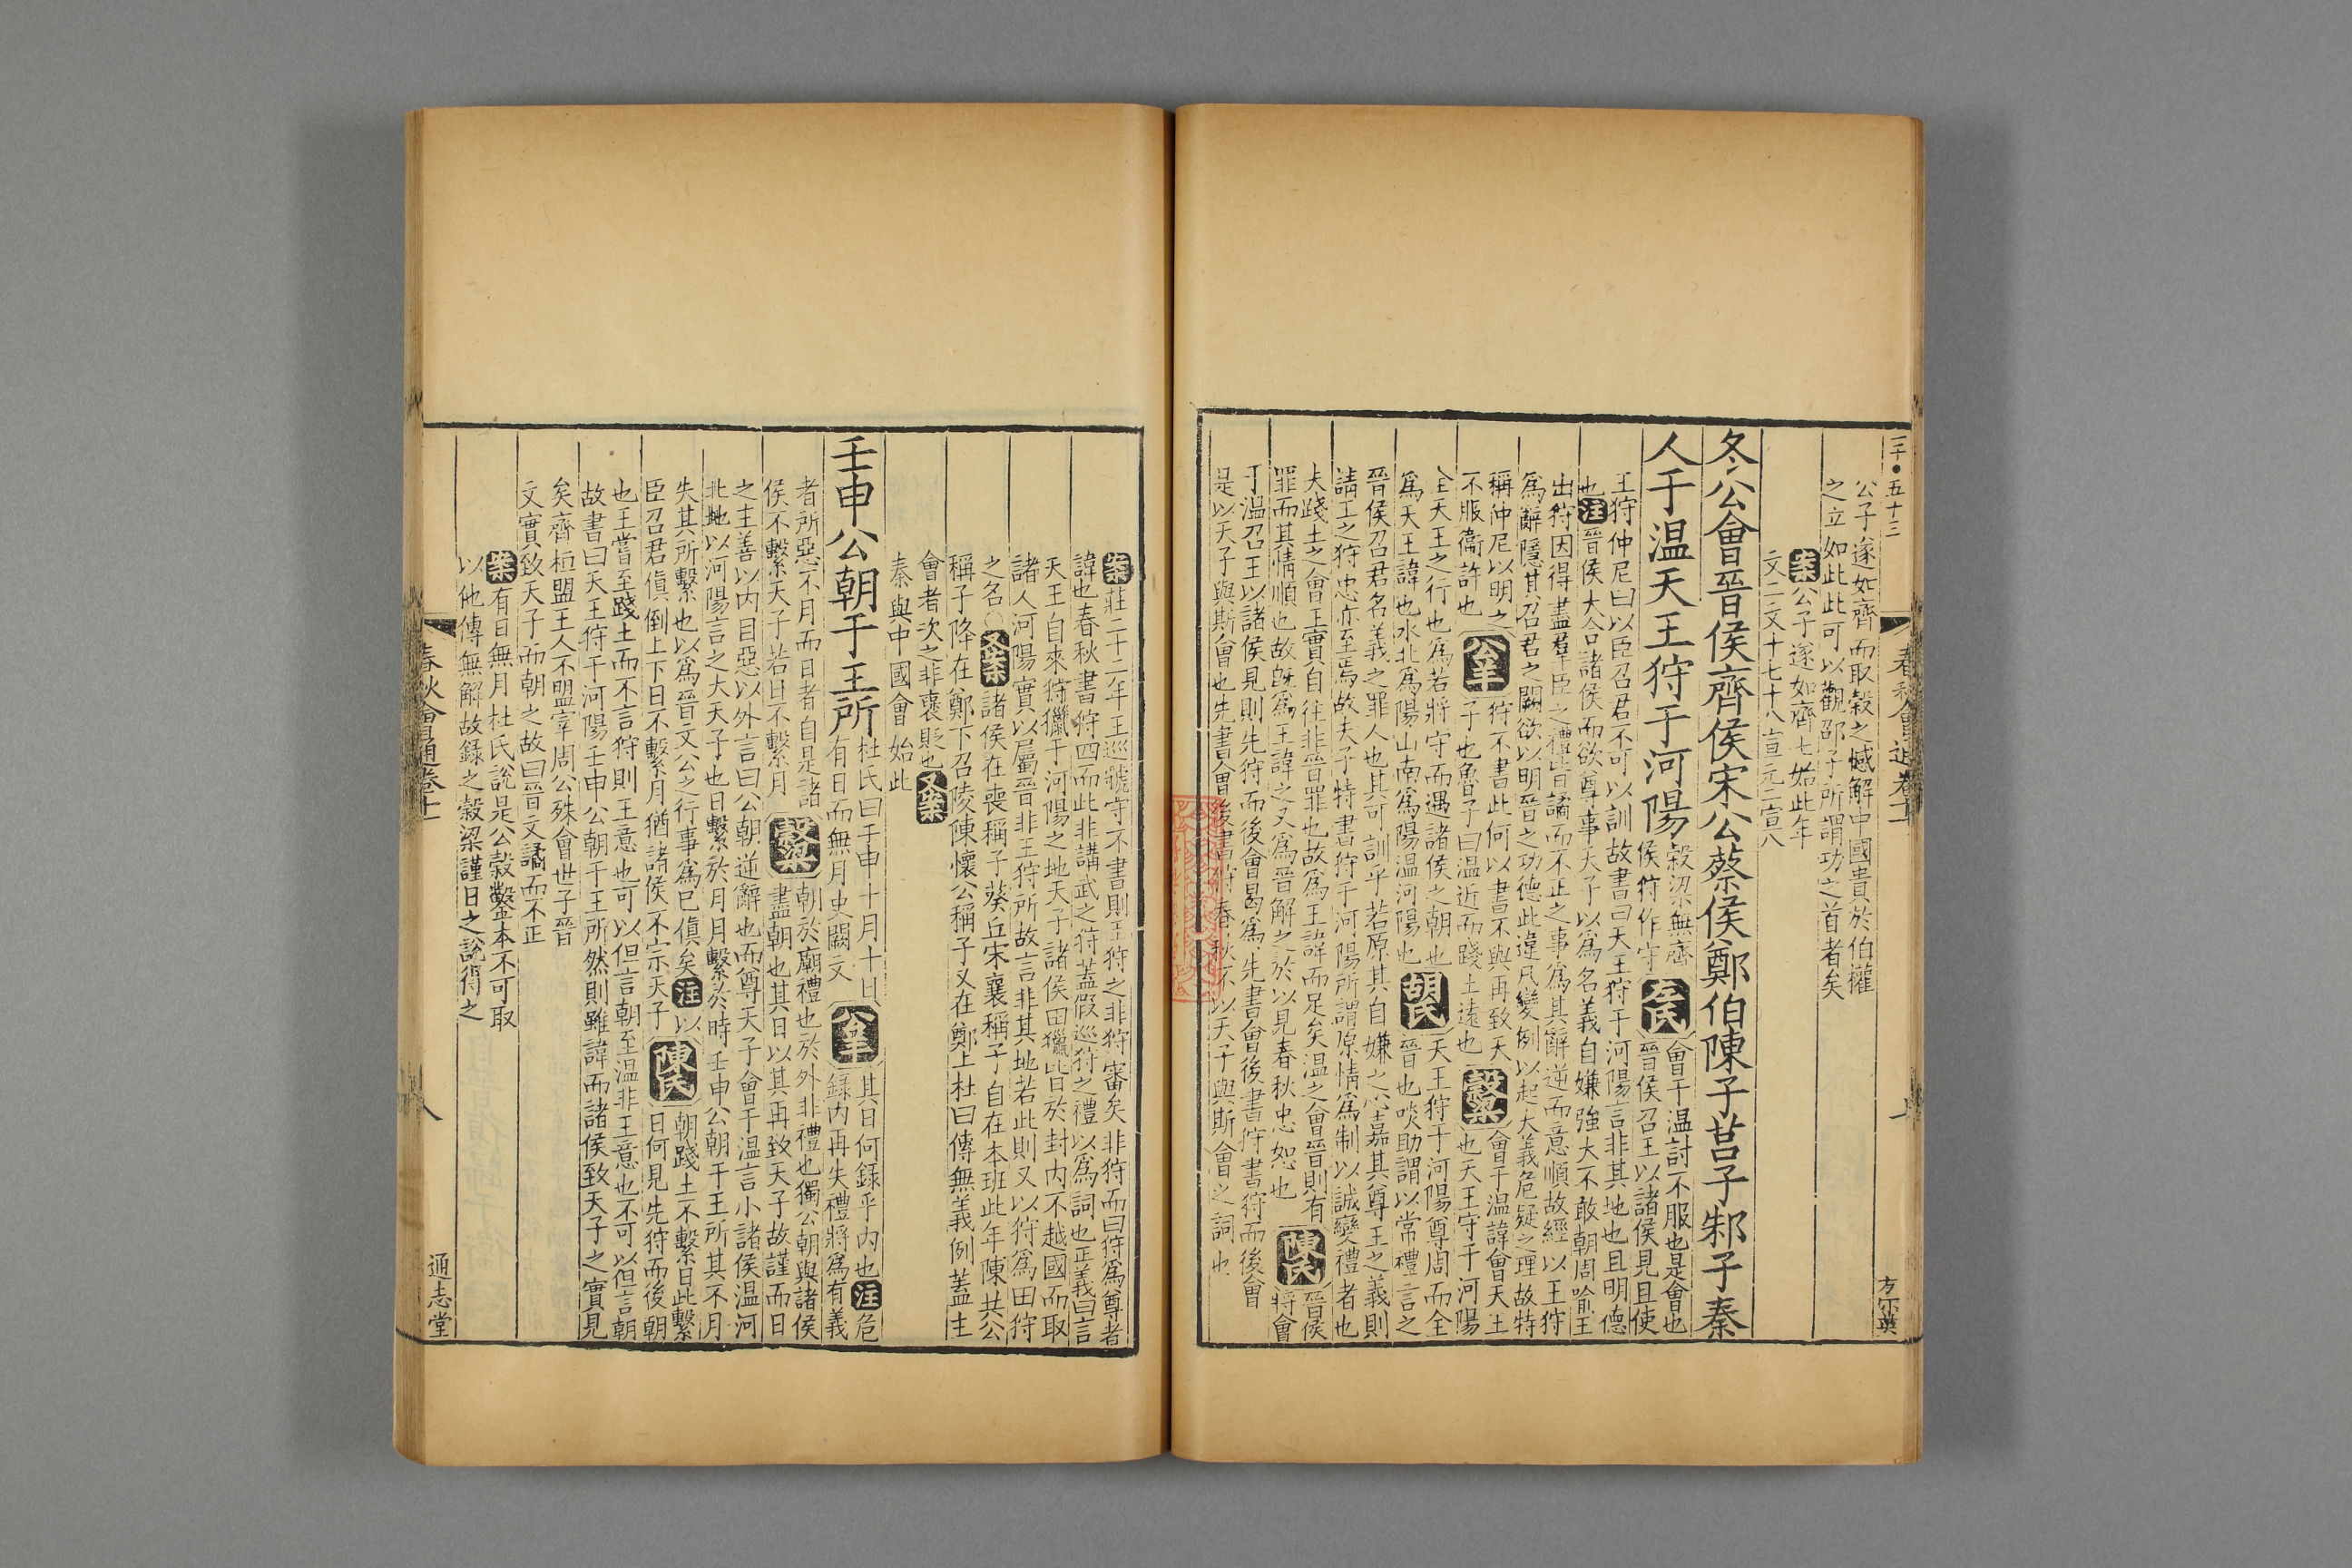 二千●五十三
春秋會通卷十一
方𡧋英
公子遂如齊而取穀之憾解中國貴於伯權
之立如此此可以觀邵子所謂功之首者矣
案公子遂如齊七始此年
文二文十七十八宣元二宣八
冬公會晉侯齊侯宋公蔡侯鄭伯陳子莒子邾子秦
人于温天王狩于河陽
穀梁無齊
侯狩作守
左氏
會于温討不服也是會也
晉侯召王以諸侯見且使
王狩仲尼曰以臣召君不可以訓故書曰天王狩于河陽言非其地也且明德
也注晉侯大合諸侯而欲尊事天子以爲名義自嫌強大不敢朝周喻王
出狩因得盡羣臣之禮皆譎而不正之事爲其辭逆而意順故經以王狩
爲辭隱其召君之闕欲以明晉之功德此違凡變例以起大義危疑之理故特
稱仲尼以明之
不服衞許也
公羊
狩不書此何以書不與再致天
子也魯子曰温近而踐土遠也
穀梁
會于温諱會天王
也天王守于河陽
全天王之行也爲若將守而遇諸侯之朝也
爲天王諱也水北爲陽山南爲陽温河陽也
胡氏
天王狩于河陽尊周而全
晉也啖助謂以常禮言之
晉侯召君名義之罪人也其可訓乎若原其自嫌之心嘉其尊王之義則
請王之狩忠亦至焉故夫子特書狩于河陽所謂原情爲制以誠變禮者也
夫踐土之會王實自往非晉罪也故爲王諱而足矣温之會晉則有
罪而其情順也故既爲王諱之又爲晉解之於以見春秋忠恕也
陳氏
晉侯
將會
于温召王以諸侯見則先狩而後會曷爲先書會後書狩書狩而後會
是以天子與斯會也先書會後書狩春秋不以天子與斯會之詞也
案莊二十二年王巡虢守不書則王狩之非狩審矣非狩而曰狩爲尊者
諱也春秋書狩四而此非講武之狩蓋假巡狩之禮以爲詞也正義曰言
天王自來狩獵于河陽之地天子諸侯田獵皆於封内不越國而取
諸人河陽實以屬晉非王狩所故言非其地若此則又以狩爲田狩
之名○又案諸侯在喪稱子葵丘宋襄稱子自在本班此年陳共公
稱子降在鄭下召陵陳懷公稱子又在鄭上杜曰傳無義例蓋主
會者次之非襃貶也又案
秦與中國會始此
壬申公朝于王所
杜氏曰壬申十月十日
有日而無月史闕文
公羊
其日何錄乎内也注危
錄内再失禮將爲有義
者所惡不月而日者自是諸
侯不繫天子若日不繫月
穀梁
朝於廟禮也於外非禮也獨公朝與諸侯
盡朝也其日以其再致天子故謹而日
之主善以内目惡以外言曰公朝逆辭也而尊天子會于温言小諸侯温河
北地以河陽言之大天子也日繫於月月繫於時壬申公朝于王所其不月
失其所繫也以爲晉文公之行事爲已傎矣注以
臣召君傎倒上下日不繫月猶諸侯不宗天子
陳氏
朝踐土不繫日此繫
日何見先狩而後朝
也王嘗至踐土而不言狩則王意也可以但言朝至温非王意也不可以但言朝
故書曰天王狩于河陽壬申公朝于王所然則雖諱而諸侯致天子之實見
矣齊桓盟王人不盟宰周公殊會世子晉
文實致天子而朝之故曰晉文譎而不正
案有日無月杜氏說是公穀鑿本不可取
以他傳無解故錄之穀梁謹日之說得之
春秋會通卷十一
八
通志堂